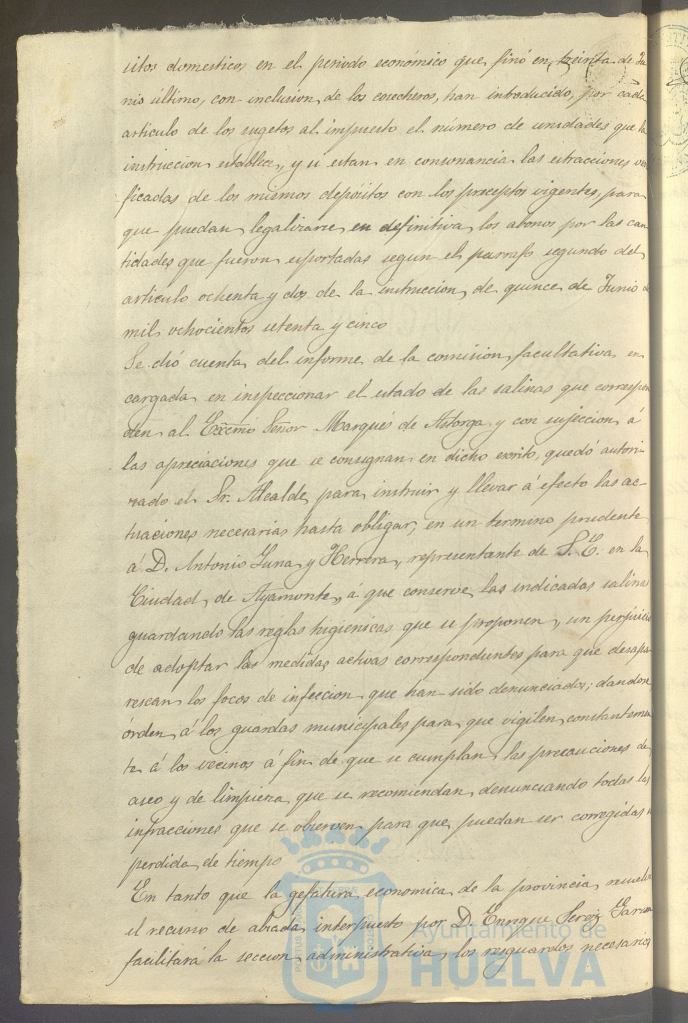 sitos domesticos en el periodo económico que finó en treinta de Ju
nio último, con inclusion de los cosecheros, han introducido, por cada
articulo de los sugetos al impuesto el número de unidades que la
instruccion establece, y si estan en consonancia las estracciones veri
ficadas de los mismos depósitos con los preceptos vigentes, para
que puedan legalizarse en definitiva los abonos por las can
tidades que fueron esportadas segun el parrafo segundo del
articulo ochenta y dos de la instruccion de quince de Junio de
mil ochocientos setenta y cinco
Se dió cuenta del informe de la comision facultativa en
cargada en inspeccionar el estado de las salinas que correspon
den al Excmo Señor Marqués de Astorga y con sujeccion á
las apreciaciones que se consignan en dicho escrito, quedó autori-
zado el Sr. Alcalde para instruir y llevar á efecto las ac-
tuaciones necesarias hasta obligar, en un termino prudente
á D. Antonio Luna y Herrera, representante de S. E. en la
Ciudad de Ayamonte, á que conserve las indicadas salinas
guardando las reglas higienicas que se proponen, sin perjuicio
de adoptar las medidas activas correspondientes para que desapa
rescan los focos de infeccion que han sido denunciados; dandose
órden á los guardas municipales para que vigilen constantemen
te á los vecinos á fin de que se cumplan las precauciones de
aseo y de limpieza que se recomiendan, denunciando todas las
infracciones que se observen para que puedan ser corregidas sin
perdida de tiempo
En tanto que la gefatura economica de la provincia resuelve
el recurso de alzada interpuesto por D. Enrique
facilitará la seccion administrativa los resguardos necesarios
Ayuntamiento de
HUELVA